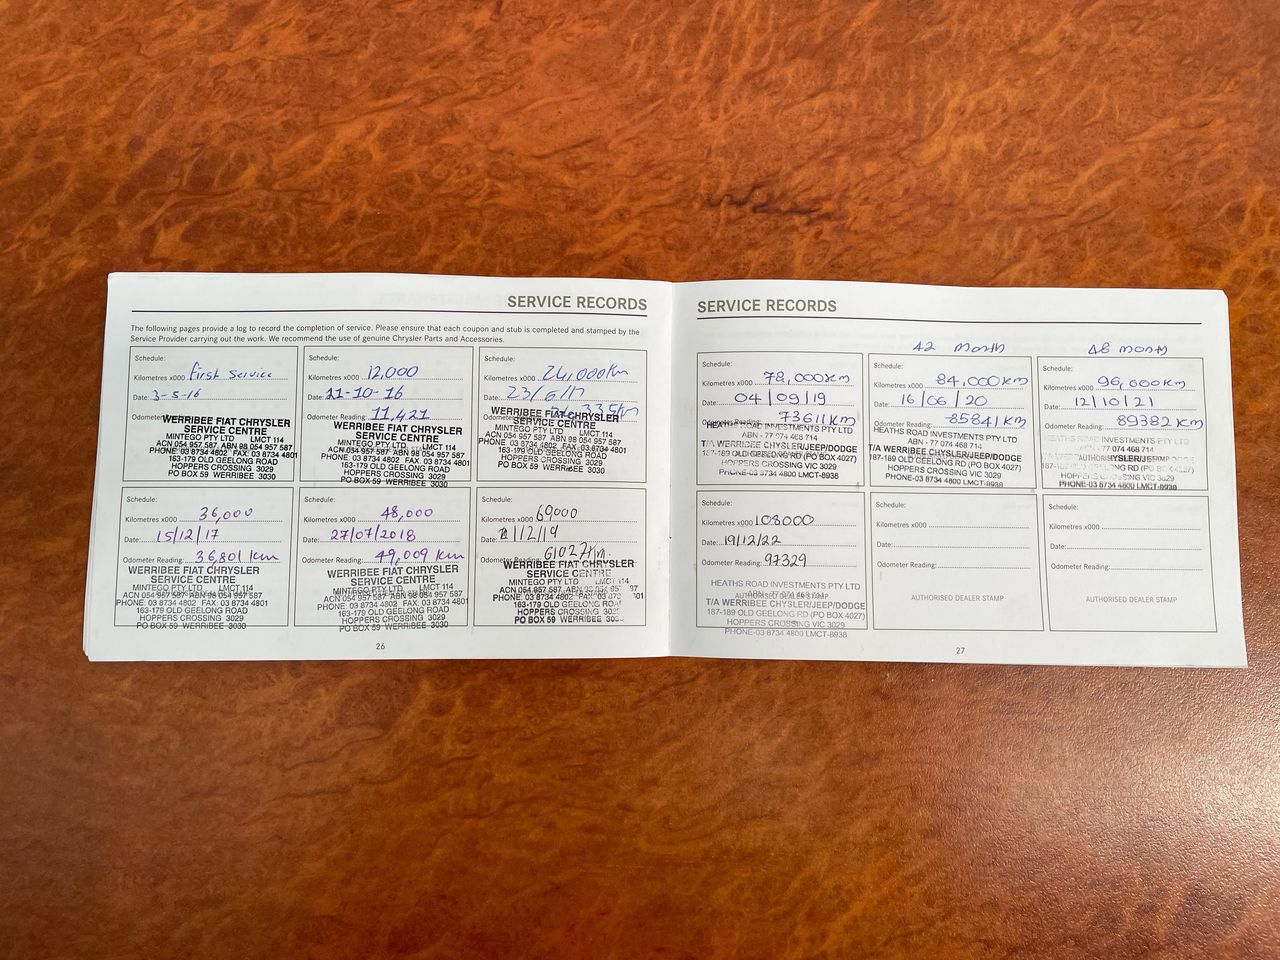 SERVICE RECORDS
The following pages provide a log to record the completion of service. Please ensure that each coupon and stub is completed and stamped by the
Service Provider carrying out the work. We recommend the use of genuine Chrysler Parts and Accessories.
Schedule:
Kilometres x000 First Service
Date: 3-5-16
Odometer
WERRIBEE FIAT CHRYSLER
SERVICE CENTRE
MINTEGO PTY LTD LMCT 114
ACN 054 957 587 ABN 98 054 957 587
PHONE: 03 8734 4802 FAX: 03 8734 4801
163-179 OLD GEELONG ROAD
HOPPERS CROSSING 3029
PO BOX 59 WERRIBEE 3030
Schedule:
Kilometres x000 12,000
Date: 11-10-16
Odometer Reading: 11,421
WERRIBEE FIAT CHRYSLER
SERVICE CENTRE
MINTEGO PTY LTD LMCT 114
ACN 054 957 587 ABN 98 054 957 587
PHONE: 03 8734 4802 FAX: 03 8734 4801
163-179 OLD GEELONG ROAD
HOPPERS CROSSING 3029
PO BOX 59 WERRIBEE 3030
Schedule:
Kilometres x000 24,000km
Date: 23/6/17
WERRIBEE FIAT CHRYSLER
SERVICE CENTRE
MINTEGO PTY LTD LMCT 114
ACN 054 957 587 ABN 98 054 957 587
PHONE: 03 8734 4802 FAX: 03 8734 4801
163-179 OLD GEELONG ROAD
HOPPERS CROSSING 3029
PO BOX 59 WERRIBEE 3030
Schedule:
Kilometres x000 36,000
Date: 15/12/17
Odometer Reading: 36,801 km
WERRIBEE FIAT CHRYSLER
SERVICE CENTRE
MINTEGO PTY LTD LMCT 114
ACN 054 957 587 ABN 98 054 957 587
PHONE: 03 8734 4802 FAX: 03 8734 4801
163-179 OLD GEELONG ROAD
HOPPERS CROSSING 3029
PO BOX 59 WERRIBEE 3030
Schedule:
Kilometres x000 48,000
Date: 27/07/2018
Odometer Reading: 49,009 km
WERRIBEE FIAT CHRYSLER
SERVICE CENTRE
MINTEGO PTY LTD LMCT 114
ACN 054 957 587 ABN 98 054 957 587
PHONE: 03 8734 4802 FAX: 03 8734 4801
163-179 OLD GEELONG ROAD
HOPPERS CROSSING 3029
PO BOX 59 WERRIBEE 3030
Schedule:
Kilometres x000 60000
Date:
Odometer Reading: 61027km
WERRIBEE FIAT CHRYSLER
SERVICE CENTRE
MINTEGO PTY LTD
ACN 054 957 587
PHONE: 03 8734 4802
163-179 OLD GEELONG ROAD
HOPPERS CROSSING
PO BOX 59 WERRIBEE
26
SERVICE RECORDS
Schedule:
Kilometres x000 78,000km
Date: 04/09/19
73611km
HEATHS ROAD INVESTMENTS PTY LTD
ABN - 77 074 468 714
T/A WERRIBEE CHYSLER/JEEP/DODGE
187-189 OLD GEELONG RD (PO BOX 4027)
HOPPERS CROSSING VIC 3029
PHONE-03 8734 4800 LMCT-8938
42 Month
Schedule:
Kilometres x000 84,000km
Date: 16/06/20
Odometer Reading: 85841km
HEATHS ROAD INVESTMENTS PTY LTD
ABN - 77 074 468 714
T/A WERRIBEE CHYSLER/JEEP/DODGE
187-189 OLD GEELONG RD (PO BOX 4027)
HOPPERS CROSSING VIC 3029
PHONE-03 8734 4800 LMCT-8938
48 month
Schedule:
Kilometres x000 96,000km
Date: 12/10/21
Odometer Reading: 89382 km
HEATHS ROAD INVESTMENTS PTY LTD
ABN - 77 074 468 714
OLD GEELONG RD (PO BOX 4027)
HOPPERS CROSSING VIC 3029
PHONE-03 8734 4800 LMCT-8938
Schedule:
Kilometres x000 108000
Date: 19/12/22
Odometer Reading: 97329
HEATHS ROAD INVESTMENTS PTY LTD
ABN - 77 074 468 714
AUTHORISED DEALER STAMP
T/A WERRIBEE CHYSLER/JEEP/DODGE
187-189 OLD GEELONG RD (PO BOX 4027)
HOPPERS CROSSING VIC 3029
PHONE-03 8734 4800 LMCT-8938
Schedule:
Kilometres x000
Date:
Odometer Reading:
AUTHORISED DEALER STAMP
Schedule:
Kilometres x000
Date:
Odometer Reading:
AUTHORISED DEALER STAMP
27